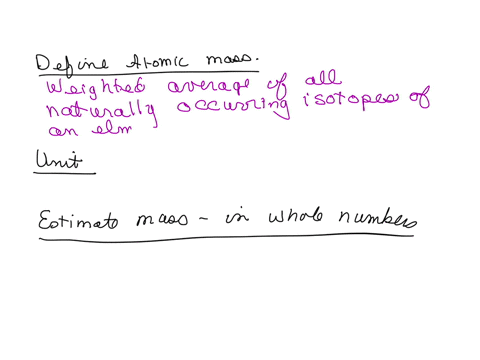 Define Atomic mass.
Weighted average of all
naturally occurring isotopes of
an elm
Unit
Estimate mass - in whole numbers